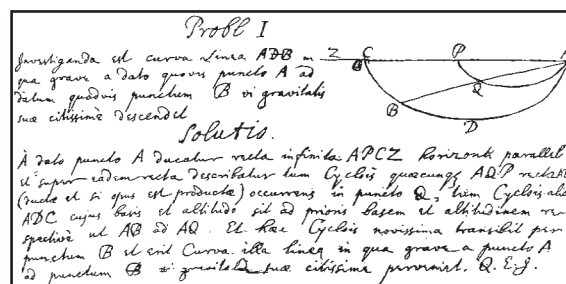 Probl I
Z C P A
Investiganda est curva Linea ADB in
qua grave a dato quovis puncto A ad
datum quodvis punctum B vi gravitatis
suæ citissimè descendet
B Q
D
Solutio.
A dato puncto A ducatur recta infinita APCZ horizonti parallela
et super eadem recta describatur tum Cyclois quæcunq AQP rectæ AB
(ductæ et si opus est productæ) occurrens in puncto Q, tum Cyclois alia
ADC cujus basis et altitudo sit ad prioris basem et altitudinem re
spectivè ut AB ad AQ. Et hæc Cyclois novissima transibit per
punctum B et erit Curva illa linea in qua grave a puncto A
ad punctum B vi gravitatis suæ citissimè perveniet. Q.E.I.